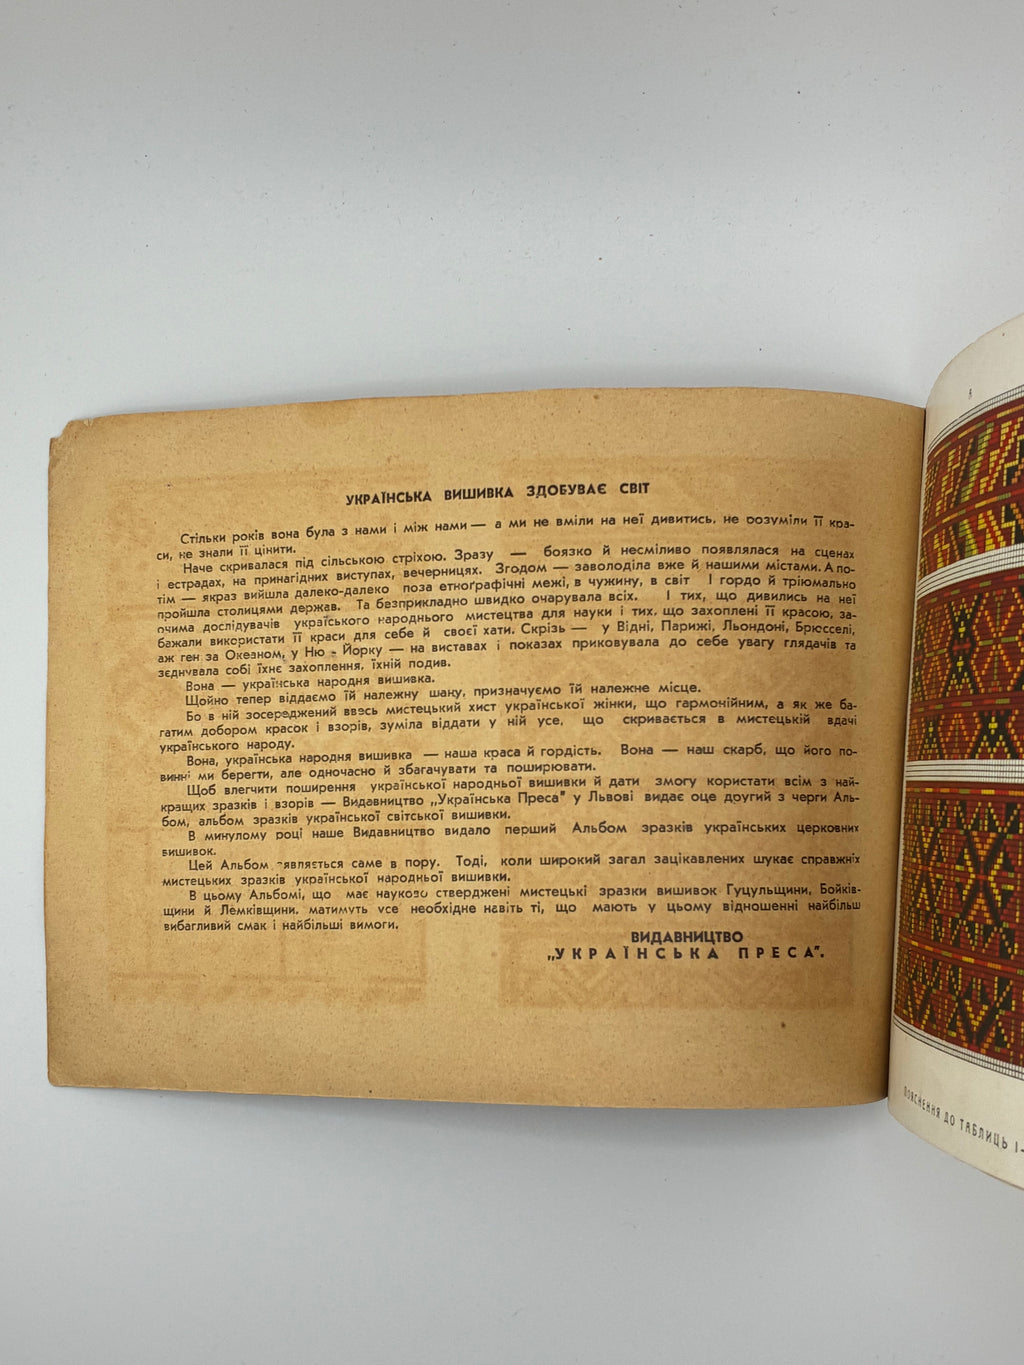 УКРАЇНСЬКА ВИШИВКА ЗДОБУВАЄ СВІТ
Стільки років вона була з нами і між нами — а ми не вміли на неї дивитись, не розуміли її кра-
си, не знали її цінити.
Наче скривалася під сільською стріхою. Зразу — боязко й несміливо появлялася на сценах
і естрадах, на принагідних виступах, вечерницях. Згодом — заволоділа вже й нашими містами. А по-
тім — якраз вийшла далеко-далеко поза етноґрафічні межі, в чужину, в світ І гордо й тріюмально
пройшла столицями держав. Та безприкладно швидко очарувала всіх. І тих, що дивились на неї
очима дослідувачів українського народнього мистецтва для науки і тих, що захоплені її красою, за-
бажали використати її краси для себе й своєї хати. Скрізь — у Відні, Парижі, Льондоні, Брюсселі,
аж ген за Океаном, у Ню - Йорку — на виставах і показах приковувала до себе увагу глядачів та
зєднувала собі їхнє захоплення, їхній подив.
Вона — українська народня вишивка.
Щойно тепер віддаємо їй належну шану, призначуємо їй належне місце.
Бо в ній зосереджений ввесь мистецький хист української жінки, що гармонійним, а як же ба-
гатим добором красок і взорів, зуміла віддати у ній усе, що скривається в мистецькій вдачі
українського народу.
Вона, українська народня вишивка — наша краса й гордість. Вона — наш скарб, що його по-
винні ми берегти, але одночасно й збагачувати та поширювати.
Щоб влегчити поширення української народньої вишивки й дати змогу користати всім з най-
кращих зразків і взорів — Видавництво „Українська Преса" у Львові видає оце другий з черги Аль-
бом, альбом зразків української світської вишивки.
В минулому році наше Видавництво видало перший Альбом зразків українських церковних
вишивок.
Цей Альбом являється саме в пору. Тоді, коли широкий загал зацікавлених шукає справжніх
мистецьких зразків української народньої вишивки.
В цьому Альбомі, що має науково стверджені мистецькі зразки вишивок Гуцульщини, Бойків-
щини й Лемківщини, матимуть усе необхідне навіть ті, що мають у цьому відношенні найбільш
вибагливий смак і найбільші вимоги.
ВИДАВНИЦТВО
„УКРАЇНСЬКА ПРЕСА".
ПОЯСНЕННЯ ДО ТАБЛИЦЬ I-